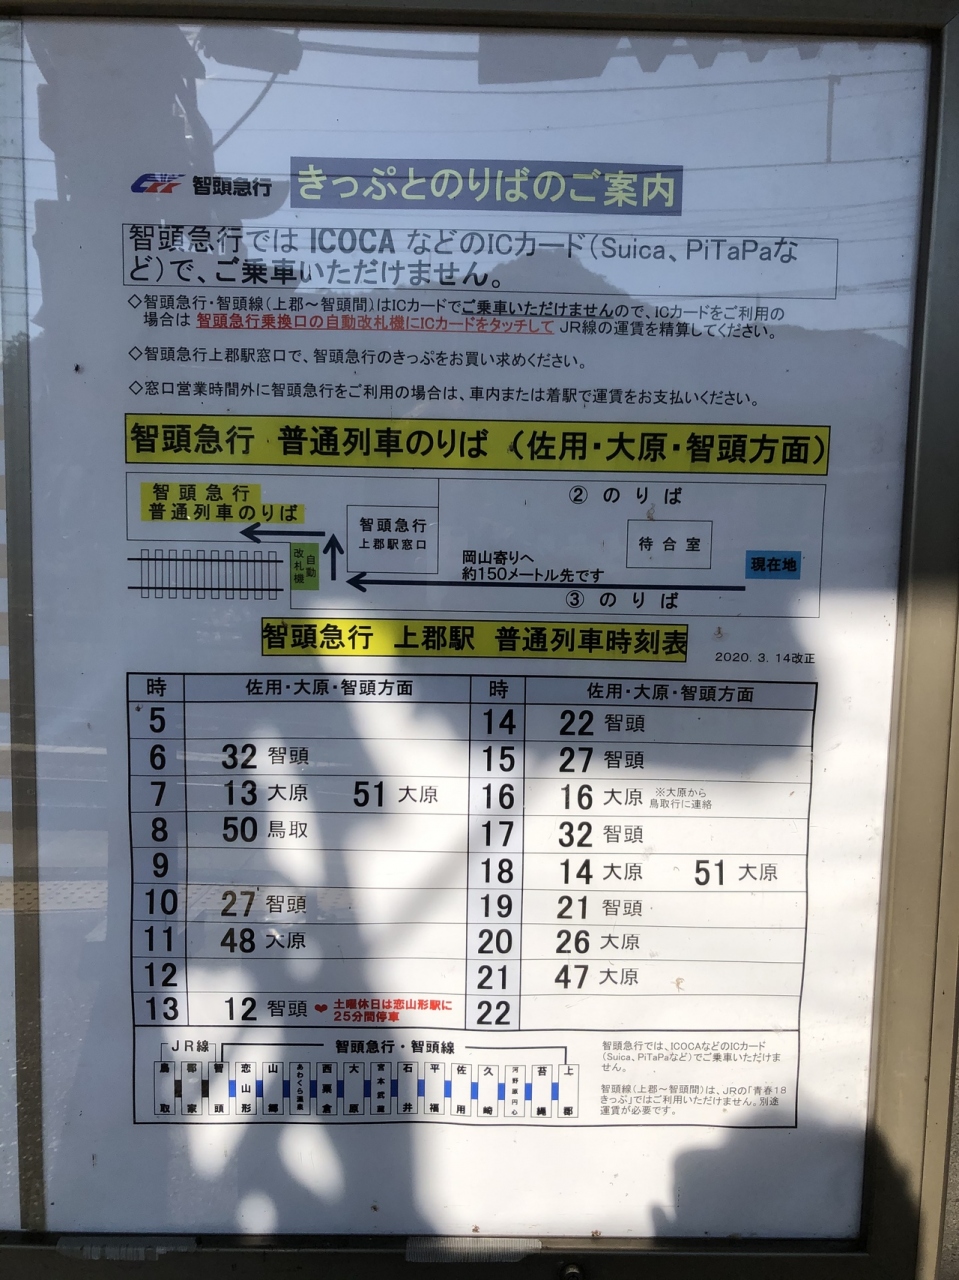 智頭急行 きっぷとのりばのご案内
智頭急行では ICOCA などのICカード(Suica、PiTaPaな
ど)で、ご乗車いただけません。
◇智頭急行・智頭線(上郡～智頭間)はICカードでご乗車いただけませんので、ICカードをご利用の
場合は 智頭急行乗換口の自動改札機にICカードをタッチして JR線の運賃を精算してください。
◇智頭急行上郡駅窓口で、智頭急行のきっぷをお買い求めください。
◇窓口営業時間外に智頭急行をご利用の場合は、車内または着駅で運賃をお支払いください。
智頭急行 普通列車のりば (佐用・大原・智頭方面)
智頭急行
普通列車のりば
智頭急行
上郡駅窓口
自動
改札機
②のりば
待合室
現在地
岡山寄りへ
約150メートル先です
③のりば
智頭急行 上郡駅 普通列車時刻表
2020.3.14改正
時 佐用・大原・智頭方面 時 佐用・大原・智頭方面
5 14 22 智頭
6 32 智頭 15 27 智頭
7 13 大原 51 大原 16 16 大原 ※大原から
鳥取行に連絡
8 50 鳥取 17 32 智頭
9 18 14 大原 51 大原
10 27 智頭 19 21 智頭
11 48 大原 20 26 大原
12 21 47 大原
13 12 智頭 ❤土曜休日は恋山形駅に
25分間停車
22
JR線 智頭急行・智頭線
鳥取
郡家
智頭
恋山形
山郷
あわくら温泉
西粟倉
大原
宮本武蔵
石井
平福
佐用
久崎
河野原円心
苔縄
上郡
智頭急行では、ICOCAなどのICカード
(Suica、PiTaPaなど)でご乗車いただけま
せん。
智頭線(上郡～智頭間)は、JRの「青春18
きっぷ」ではご利用いただけません。別途
運賃が必要です。